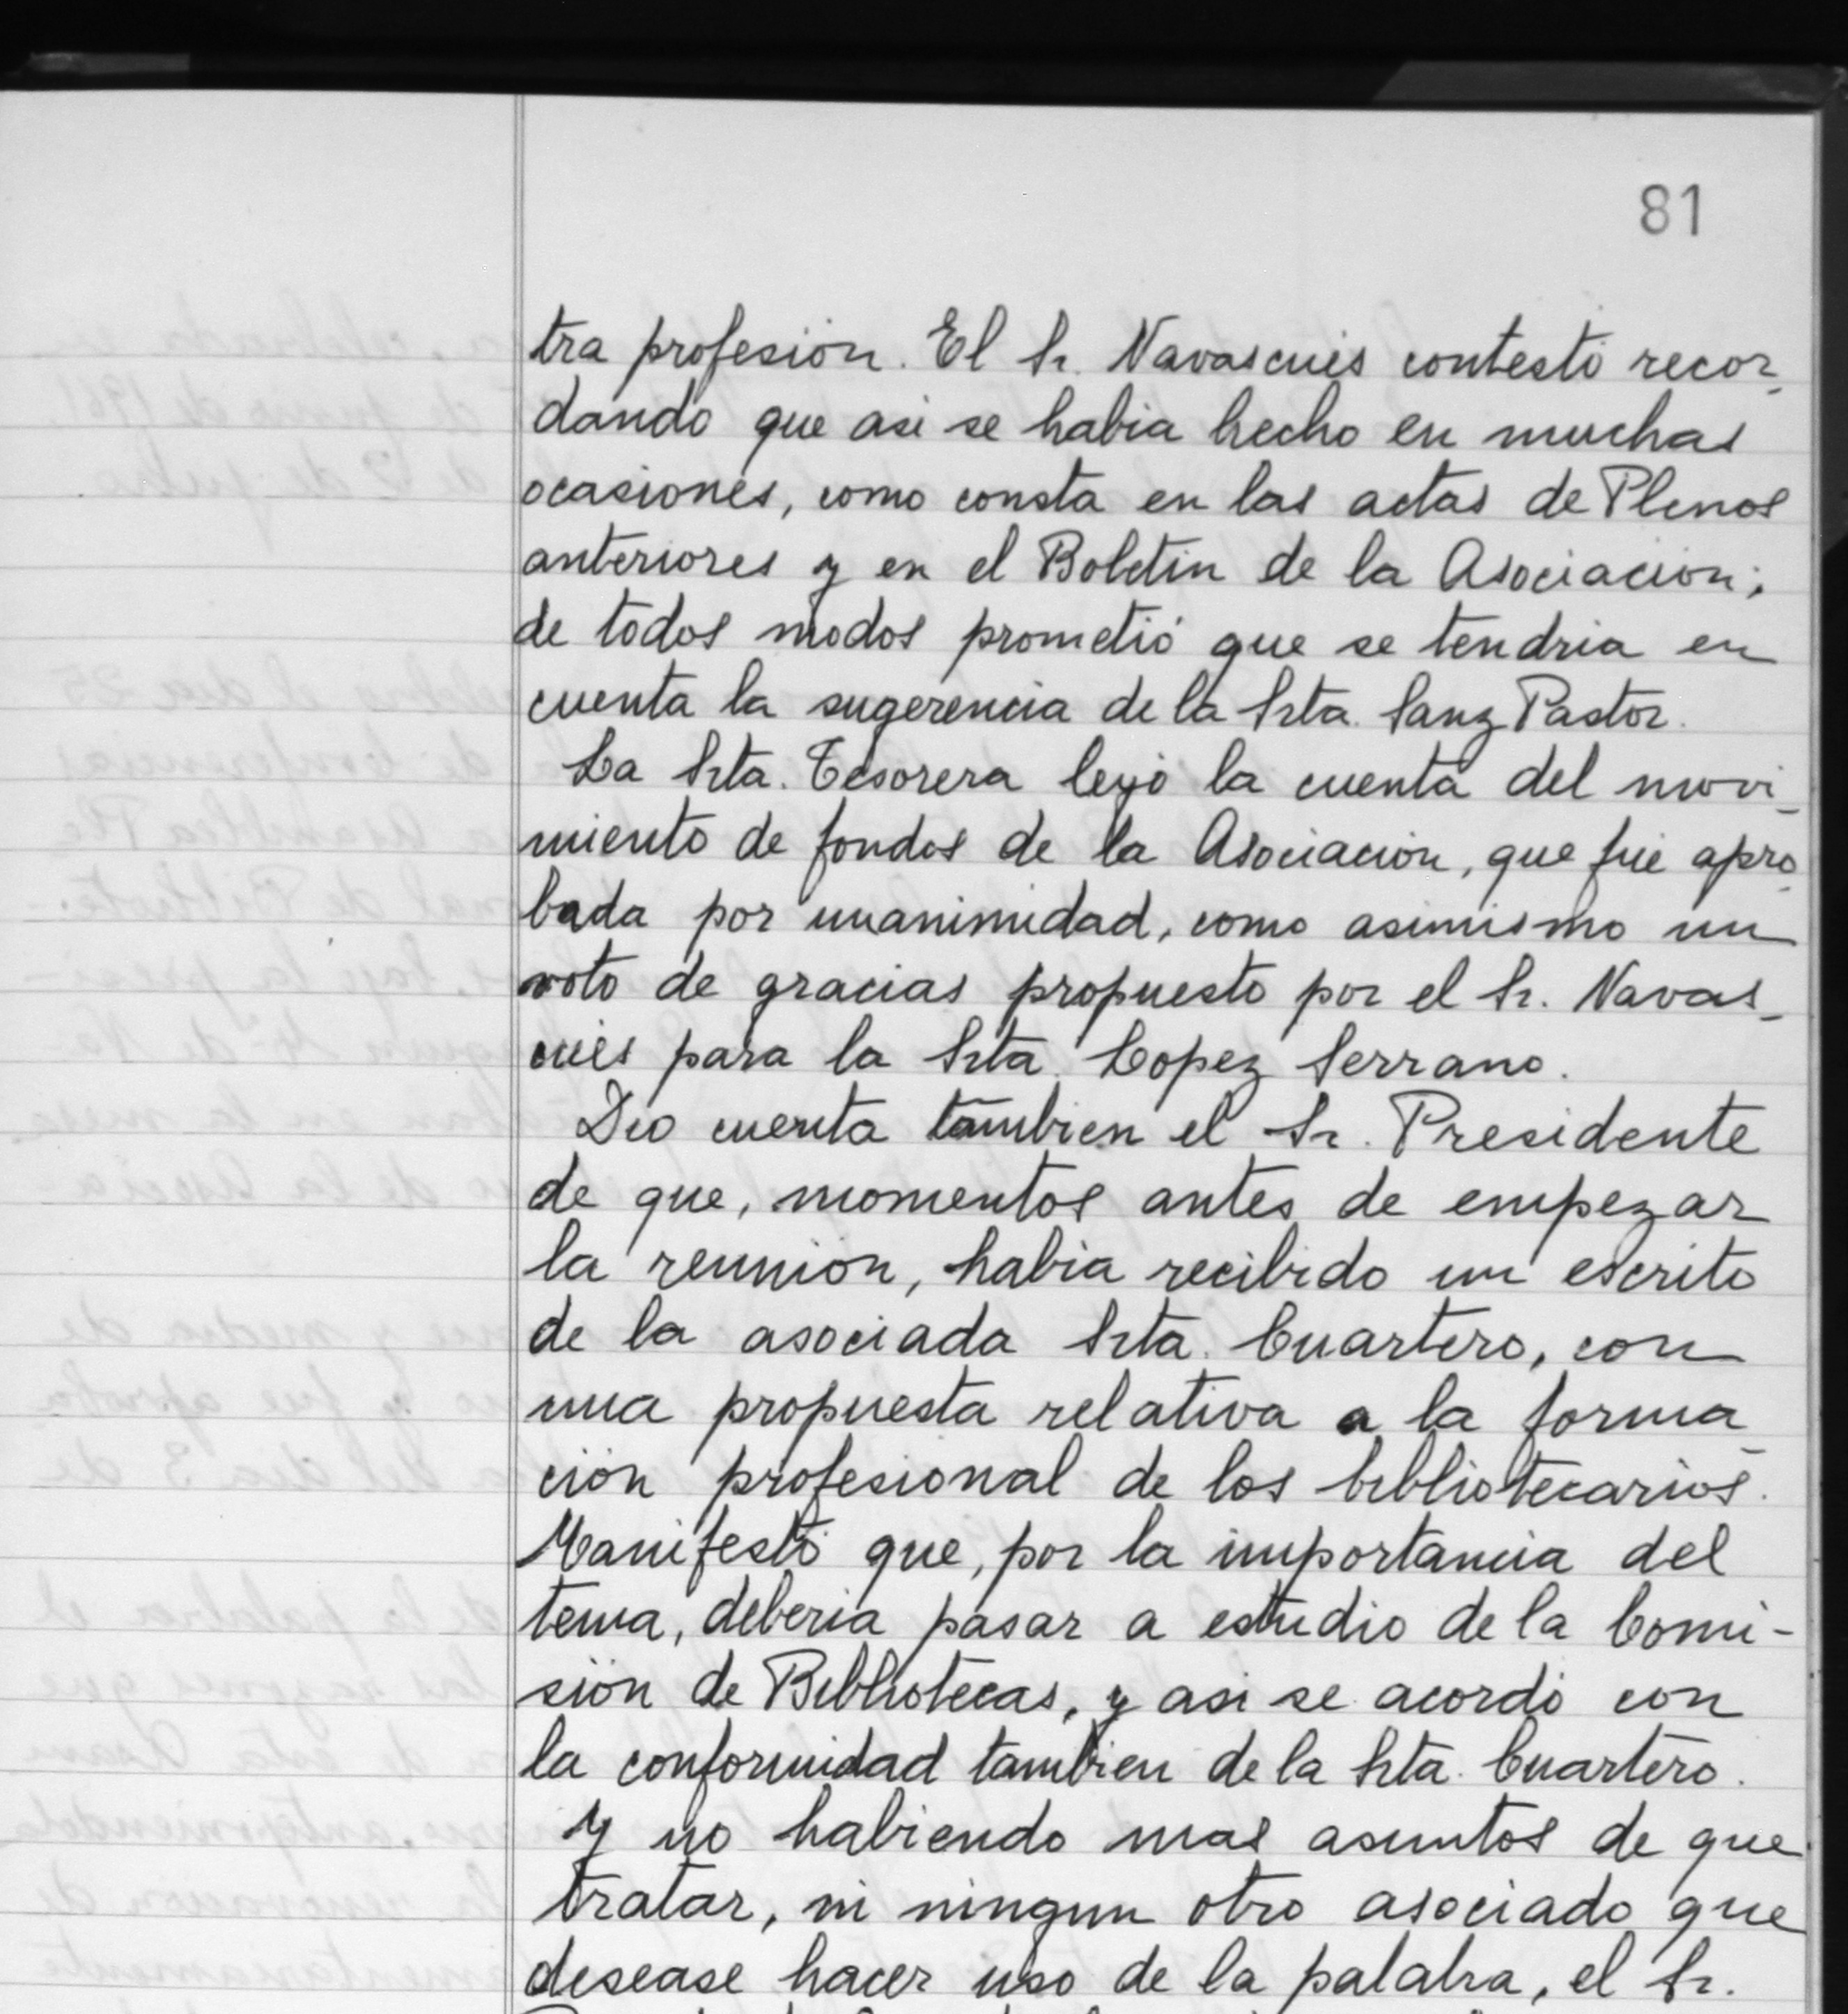 81
tra profesión. El Sr. Navascués contestó recor-
dando que asi se habia hecho en muchas
ocasiones, como consta en las actas de Plenos
anteriores y en el Boletin de la Asociación;
de todos modos prometió que se tendria en
cuenta la sugerencia de la Srta. Sanz Pastor.
La Srta. Tesorera leyó la cuenta del movi-
miento de fondos de la Asociación, que fué apro-
bada por unanimidad, como asimismo un
voto de gracias propuesto por el Sr. Navas-
cués para la Srta. Lopez Serrano.
Dio cuenta tambien el Sr. Presidente
de que, momentos antes de empezar
la reunión, habia recibido un escrito
de la asociada Srta. Cuartero, con
una propuesta relativa a la forma-
ción profesional de los bibliotecarios.
Manifestó que, por la importancia del
tema, deberia pasar a estudio de la Comi-
sión de Bibliotecas, y asi se acordó con
la conformidad tambien de la Srta. Cuartero.
Y no habiendo mas asuntos de que
tratar, ni ningun otro asociado que
desease hacer uso de la palabra, el Sr.